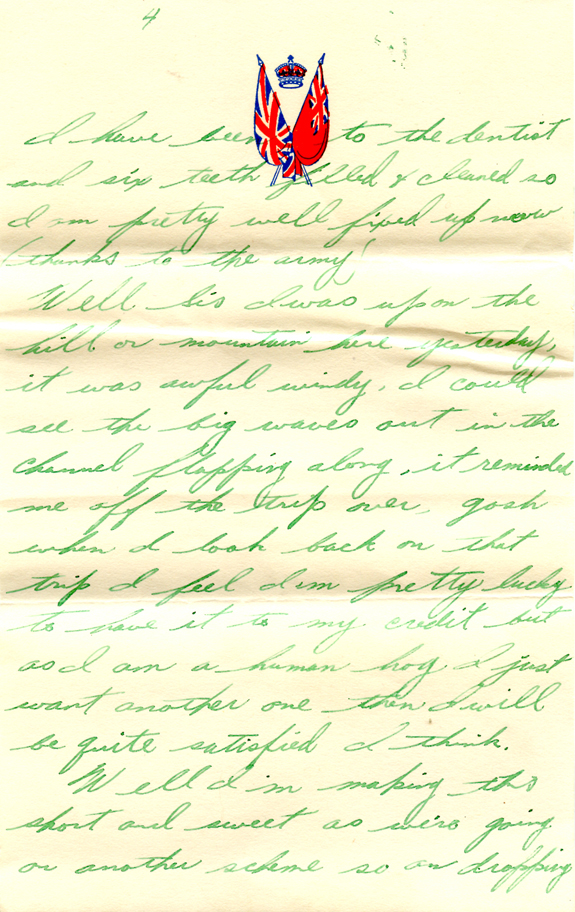 4
I have been to the dentist
and six teeth filled & cleaned so
I'm pretty well fixed up now
(thanks to the army!
Well Sis I was up on the
hill or mountain here yesterday,
it was awful windy, I could
see the big waves out in the
channel flapping along, it reminded
me off the trip over, gosh
when I look back on that
trip I feel I'm pretty lucky
to have it to my credit but
as I am a human hog I just
want another one then I will
be quite satisfied I think.
Well I'm making this
short and sweet as we're going
on another scheme so am dropping